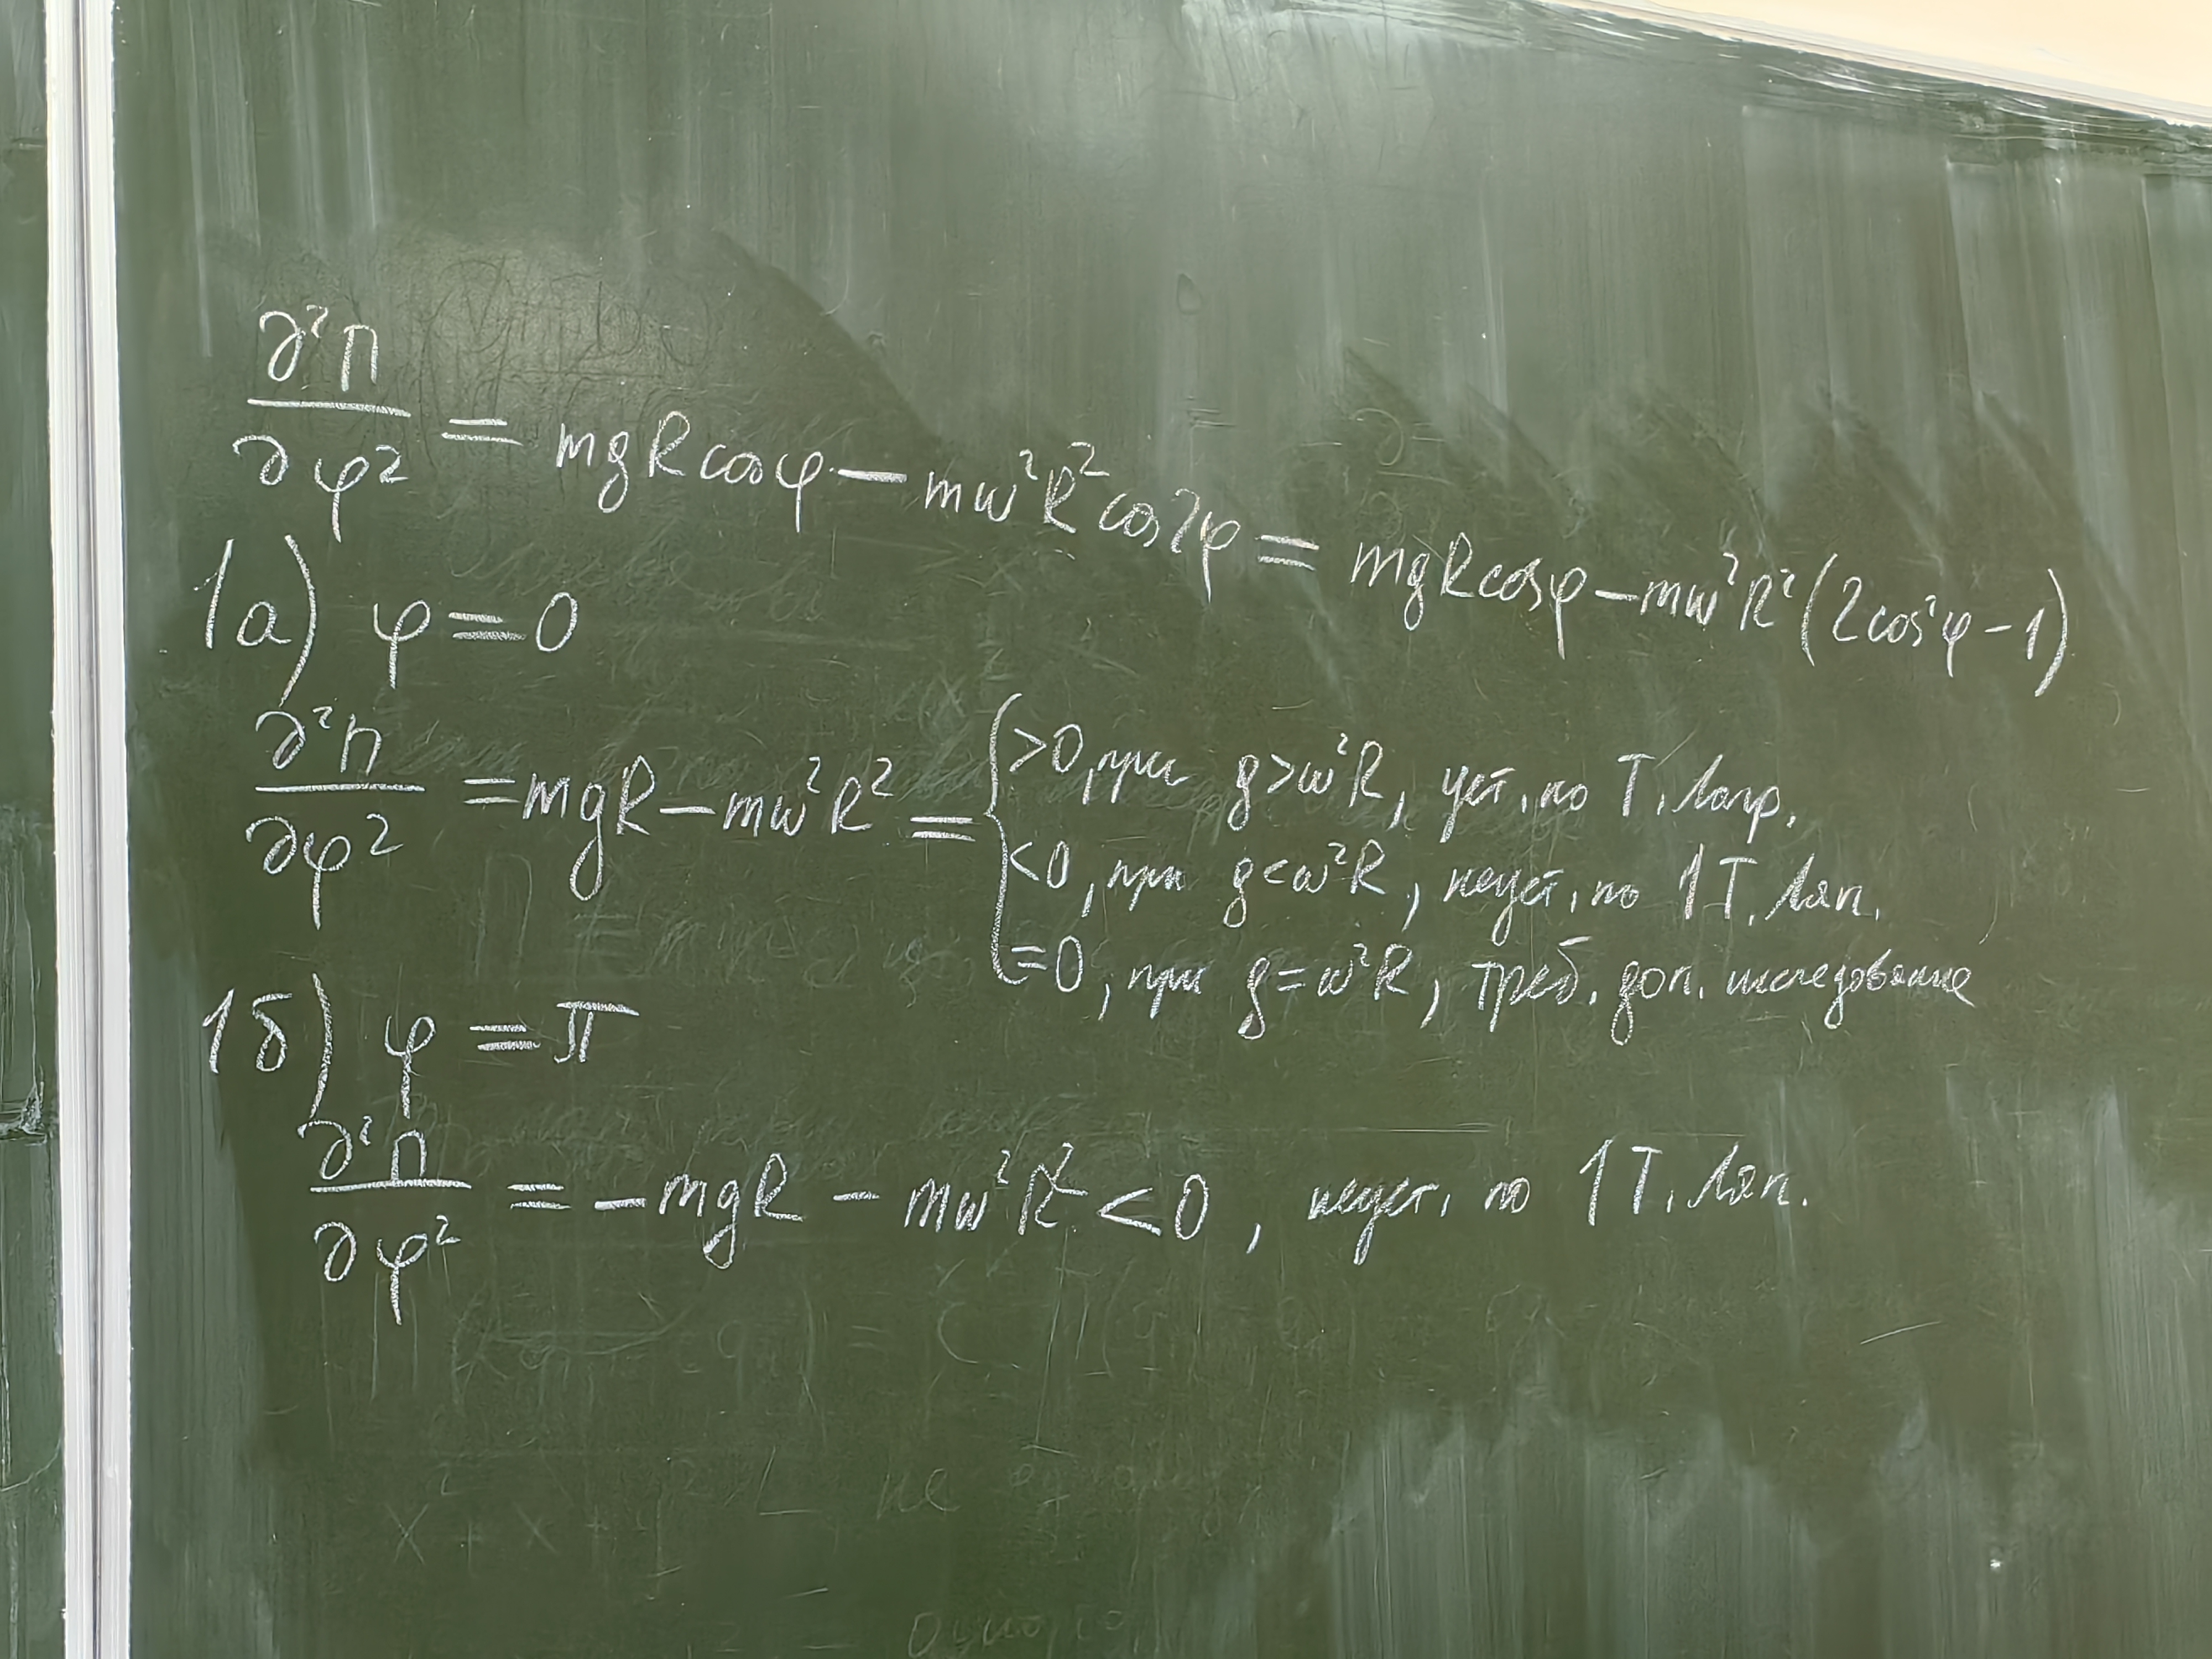 ∂²П/∂φ² = mgRcosφ − mω²R²cos2φ = mgRcosφ − mω²R²(2cos²φ − 1)
1а) φ = 0
∂²П/∂φ² = mgR − mω²R² = { >0, при g>ω²R, уст. по Т. Лагр.
<0, при g<ω²R, неуст. по 1 Т. Ляп.
=0, при g=ω²R, треб. доп. исследование
1б) φ = π
∂²П/∂φ² = −mgR − mω²R² < 0, неуст. по 1 Т. Ляп.